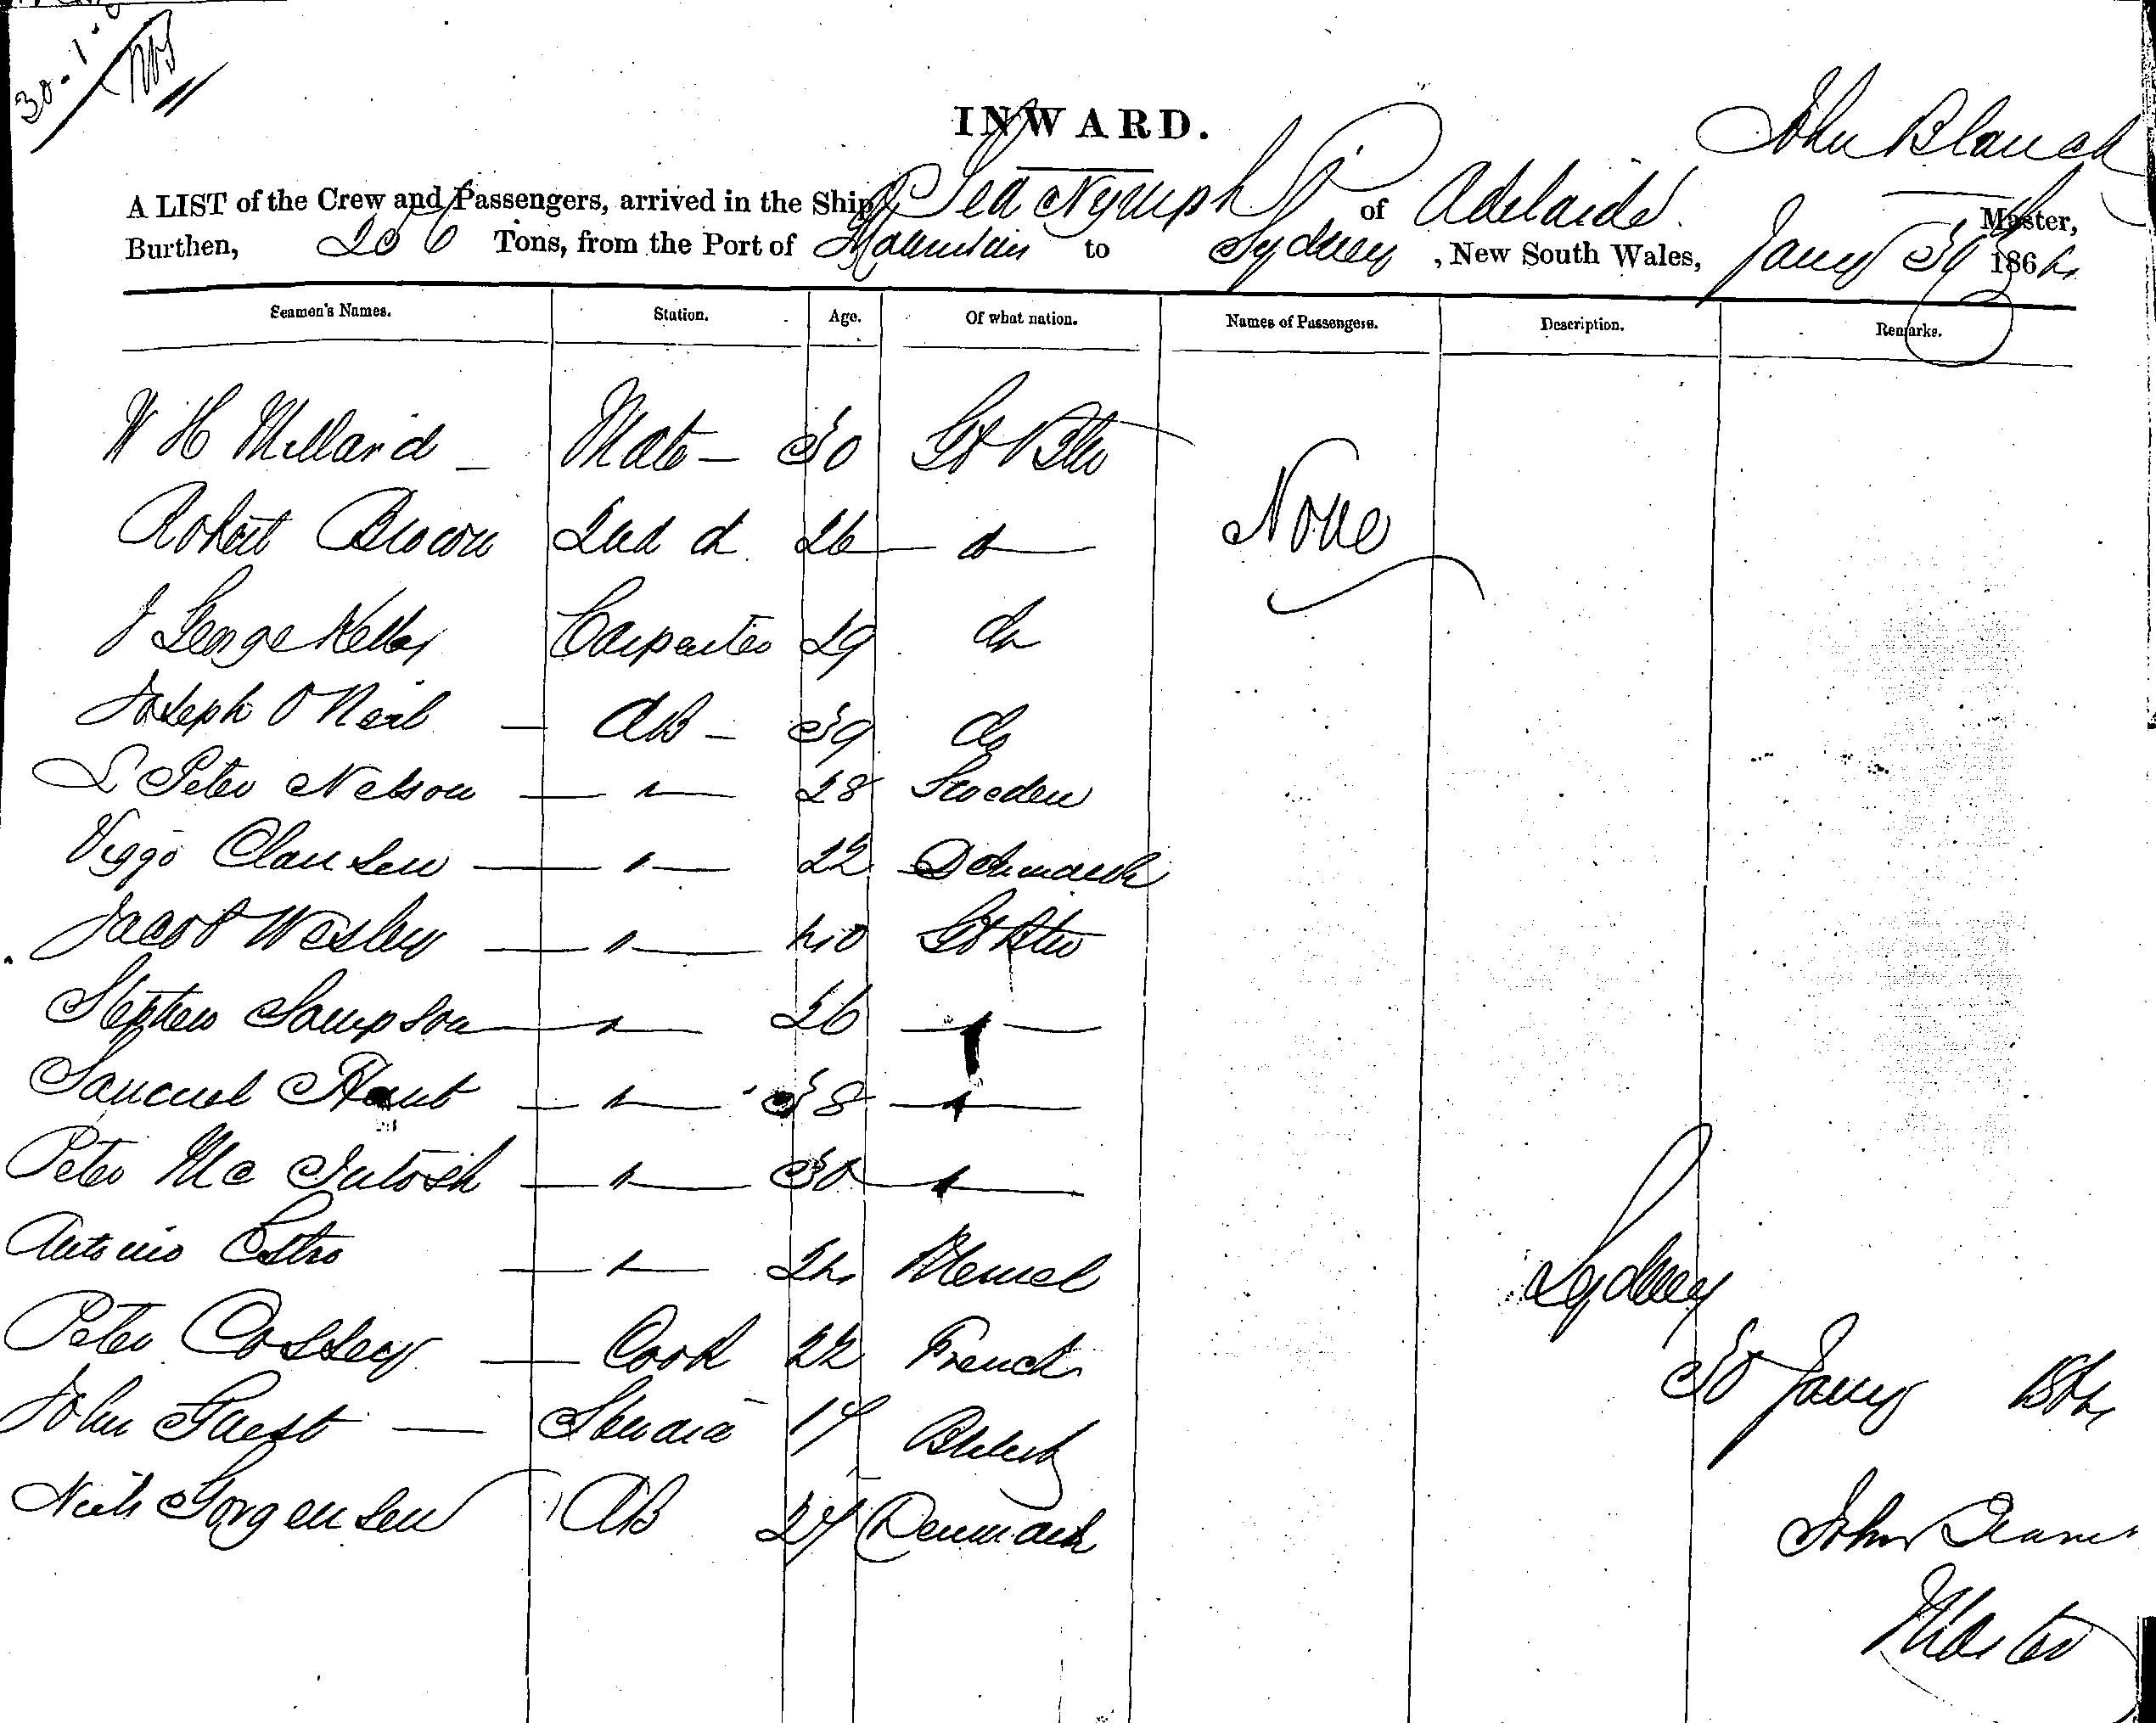 30-1-6
INWARD.
John Blanch
A LIST of the Crew and Passengers, arrived in the Ship Sea Nymph of Adelaide Master,
Burthen, 206 Tons, from the Port of to Sydney, New South Wales, Jany 1864
Seamen's Names. Station. Age. Of what nation. Names of Passengers. Description. Remarks.
W H Millard - Mate - 30 Gt Btn None
Robert Brown 2nd do 26 do
J George Keller Carpenter 29 do
Joseph O Neil - AB - 39 do
L Peter Nelson — " — 28 Sweden
Viggo Clausen — " — 22 Denmark
Jacob Wesley — " — 40 Gt Btn
Stephen Sampson — " — 26 — " —
Samuel — " — 38 — " —
Peter Mc Intosh — " — 30 — " —
Antonio — " — 24
Peter — Cook 22 French
John Guest — 17
Niels Jorgensen AB 27 Denmark
Sydney
30 Jany 1864
John
Master